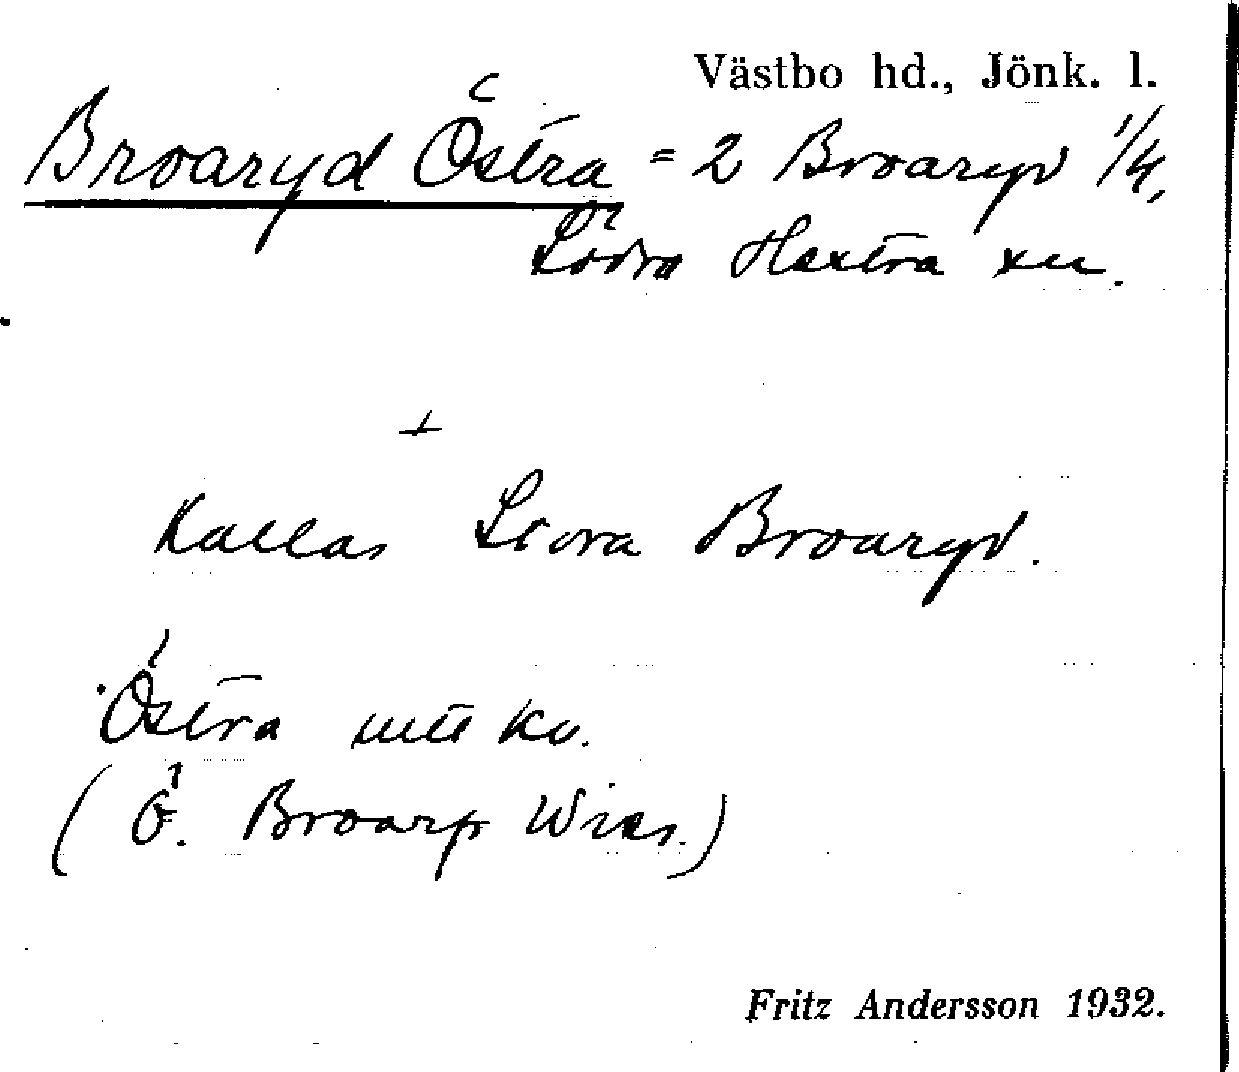 Västbo hd., Jönk. l.
Broaryd Östra = 2 Broaryd 1/4,
Södra Hestra sn.
Kallas Stora Broaryd.
Östra utt kv.
(Ö. Broarp Wies.)
Fritz Andersson 1932.